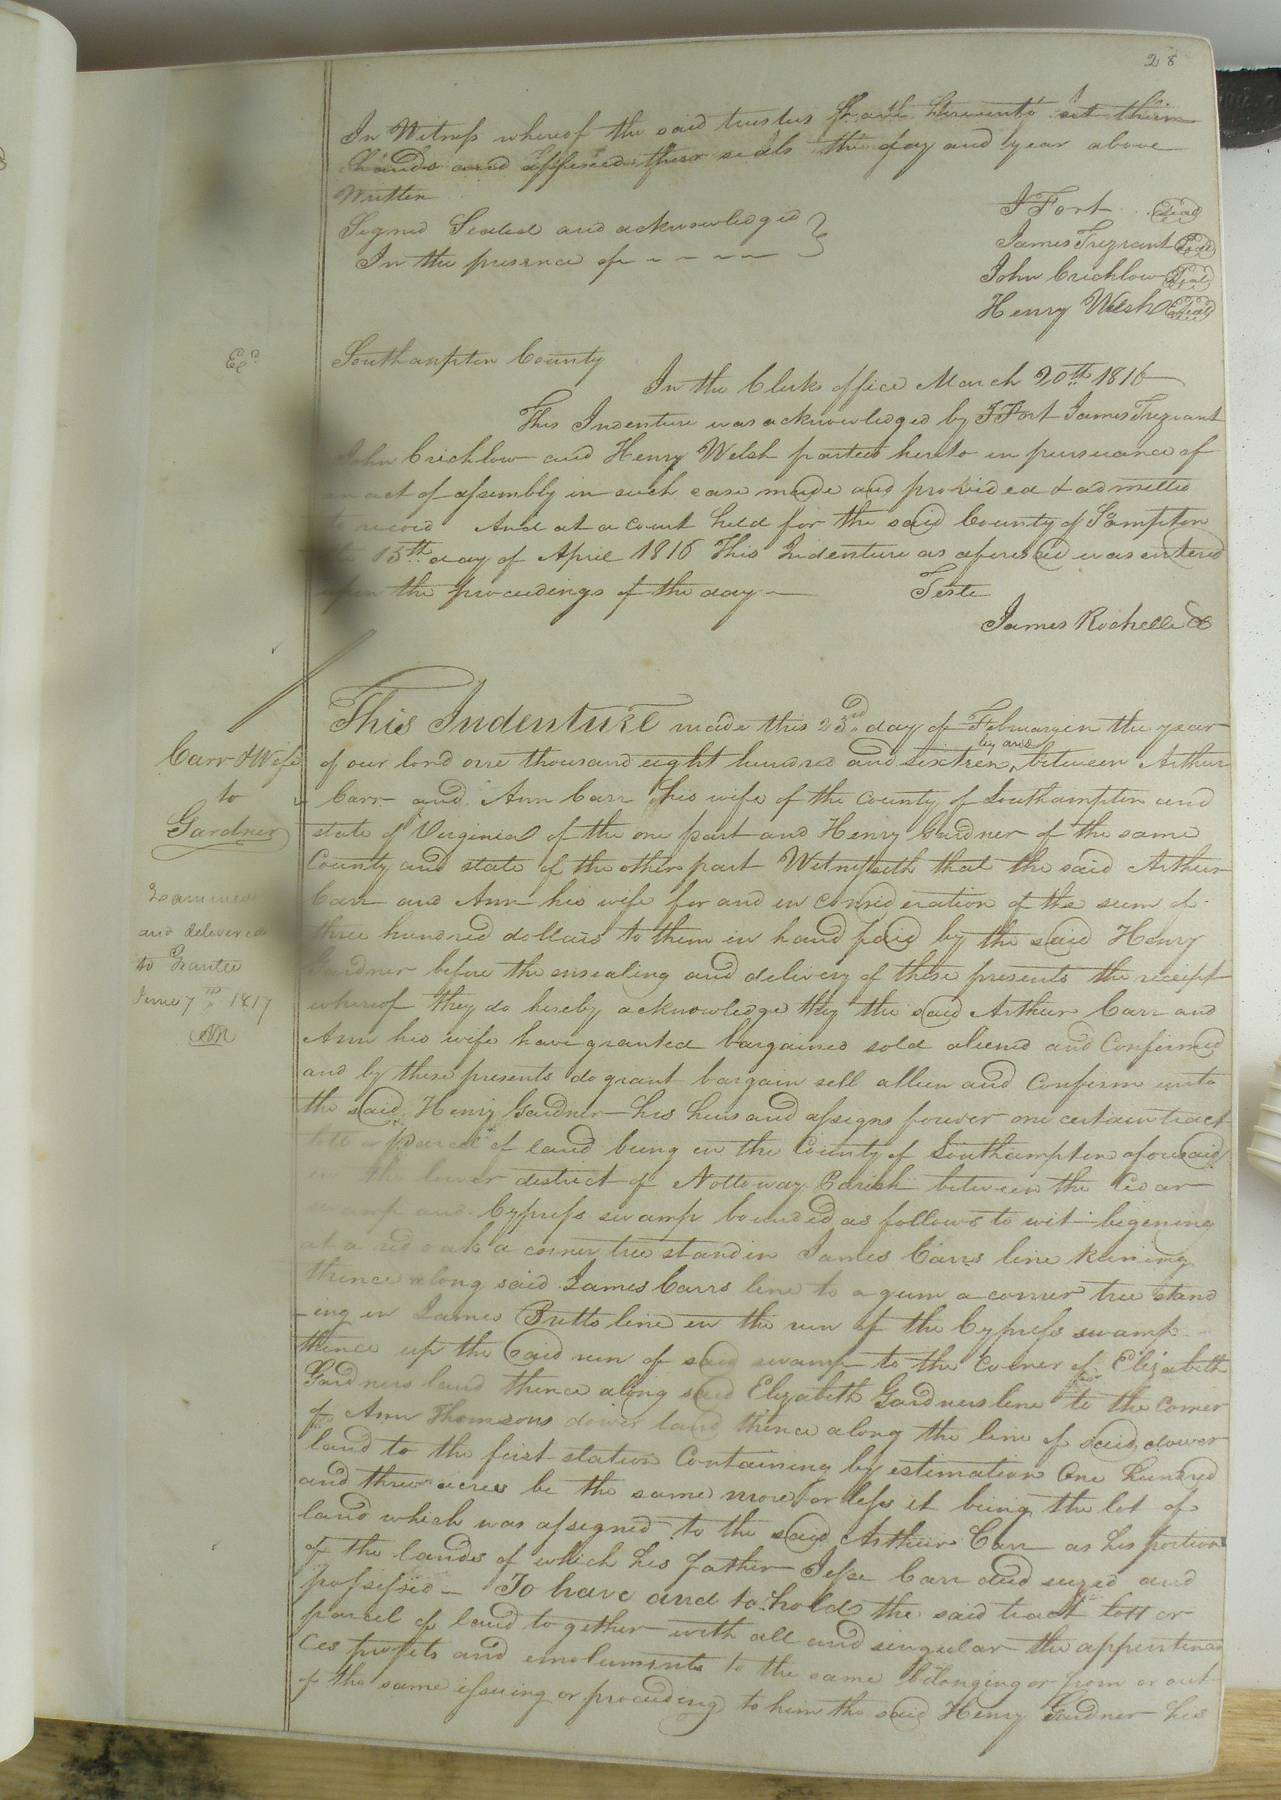 28
In Witness whereof the said trustees have hereunto set their
hands and affixed their seals the day and year above
Written
Signed Sealed and acknowledged
In the presence of - - - - -
J Fort Seal
James Trezvant Seal
John Crichlow Seal
Henry Welsh Seal
Southampton County
In the Clerks office March 20th 1816
This Indenture was acknowledged by J Fort James Trezvant
John Crichlow and Henry Welsh parties hereto in pursuance of
an act of assembly in such case made and provided & admitted
to record And at a court held for the said County of Sampton
15th day of April 1816 This Indenture as aforesaid was entered
upon the proceedings of the day - Teste
James Rochelle
Carr & Wife
to
Gardner
Examined
and delivered
to Grantee
June 7th 1817
This Indenture made this 23rd day of February in the year
of our lord one thousand eight hundred and sixteen between Arthur
Carr and Ann Carr his wife of the County of Southampton and
state of Virginia of the one part and Henry Gardner of the same
County and state of the other part Witnesseth that the said Arthur
Carr and Ann his wife for and in Consideration of the sum of
three hundred dollars to them in hand paid by the said Henry
Gardner before the ensealing and delivery of these presents the receipt
whereof they do hereby acknowledge they the said Arthur Carr and
Ann his wife have granted bargained sold aliend and Confirmed
and by these presents do grant bargain sell allien and Confirm unto
the said Henry Gardner his heirs and assigns forever one certain tract
lott or parcel of land being in the County of Southampton aforesaid
in the lower district of Nottoway Parish between the Cedar
swamp and Cypress swamp bounded as follows to wit begening
at a red oak a corner tree stand in James Carrs line runing
thence along said James Carrs line to a gum a corner tree stand
-ing in James Butts line in the run of the Cypress swamp
thence up the said run of said swamp to the Corner of Elizabeth
Gardners land thence along said Elizabeth Gardners line to the Corner
of Ann Thomsons dower land thence along the line of said dower
land to the first station Containing by estimation One hundred
and three acres be the same more or less it being the lot of
land which was assigned to the said Arthur Carr as his portion
of the lands of which his father Jesse Carr died seized and
possessed - To have and to hold the said tract lott or
parcel of land together with all and singular the appurtenan
ces profits and emoluments to the same belonging or from or out
of the same issuing or proceeding to him the said Henry Gardner his